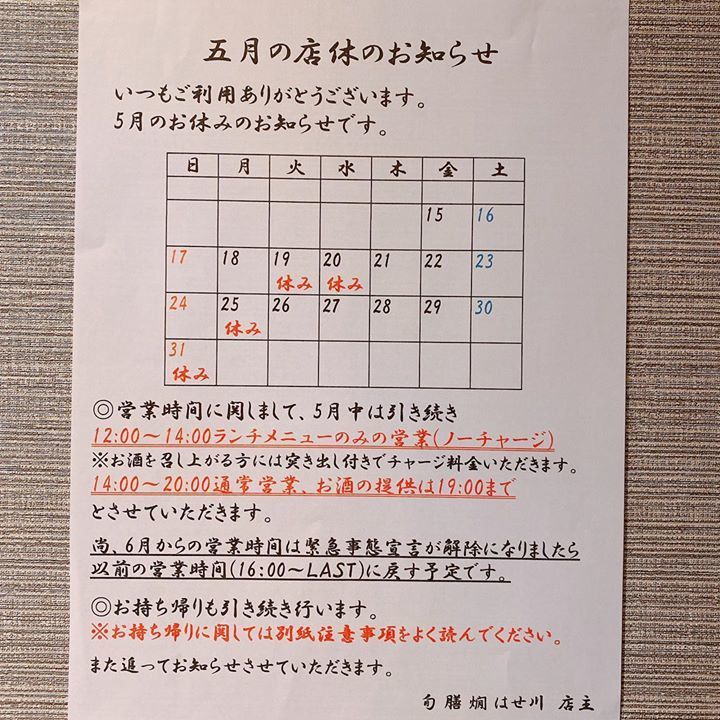 五月の店休のお知らせ
いつもご利用ありがとうございます。
5月のお休みのお知らせです。
日 月 火 水 木 金 土
15 16
17 18 19 20 21 22 23
休み 休み
24 25 26 27 28 29 30
休み
31
休み
◎営業時間に関しまして、5月中は引き続き
12:00～14:00ランチメニューのみの営業(ノーチャージ)
※お酒を召し上がる方には突き出し付きでチャージ料金いただきます。
14:00～20:00通常営業、お酒の提供は19:00まで
とさせていただきます。
尚、6月からの営業時間は緊急事態宣言が解除になりましたら
以前の営業時間(16:00～LAST)に戻す予定です。
◎お持ち帰りも引き続き行います。
※お持ち帰りに関しては別紙注意事項をよく読んでください。
また追ってお知らせさせていただきます。
旬膳燗はせ川 店主